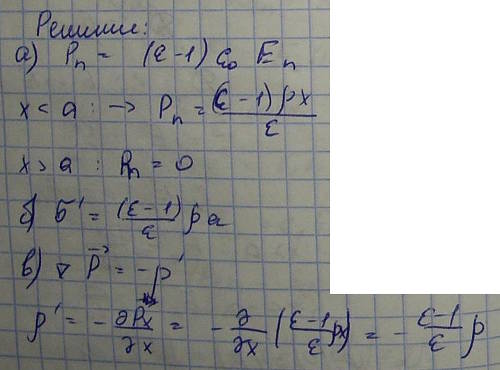 Решение:
а) Pn = (ε-1) ε₀ En
x < a : → Pn = (ε-1)ρx / ε
x > a : Pn = 0
б) б' = (ε-1)/ε ρa
в) ∇ P⃗ = -ρ'
ρ' = - ∂Px/∂x = - ∂/∂x (ε-1/ε ρx) = - ε-1/ε ρ